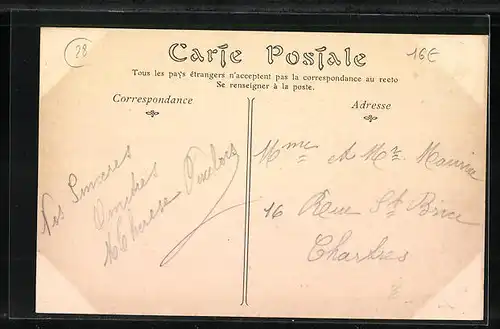 28
Carte Postale
16€
Tous les pays étrangers n'acceptent pas la correspondance au recto
Se renseigner à la poste.
Correspondance
Adresse
Nos Sincères
Thérèse
Mme A Mr. Maurice
16 Rue St Brice
Chartres